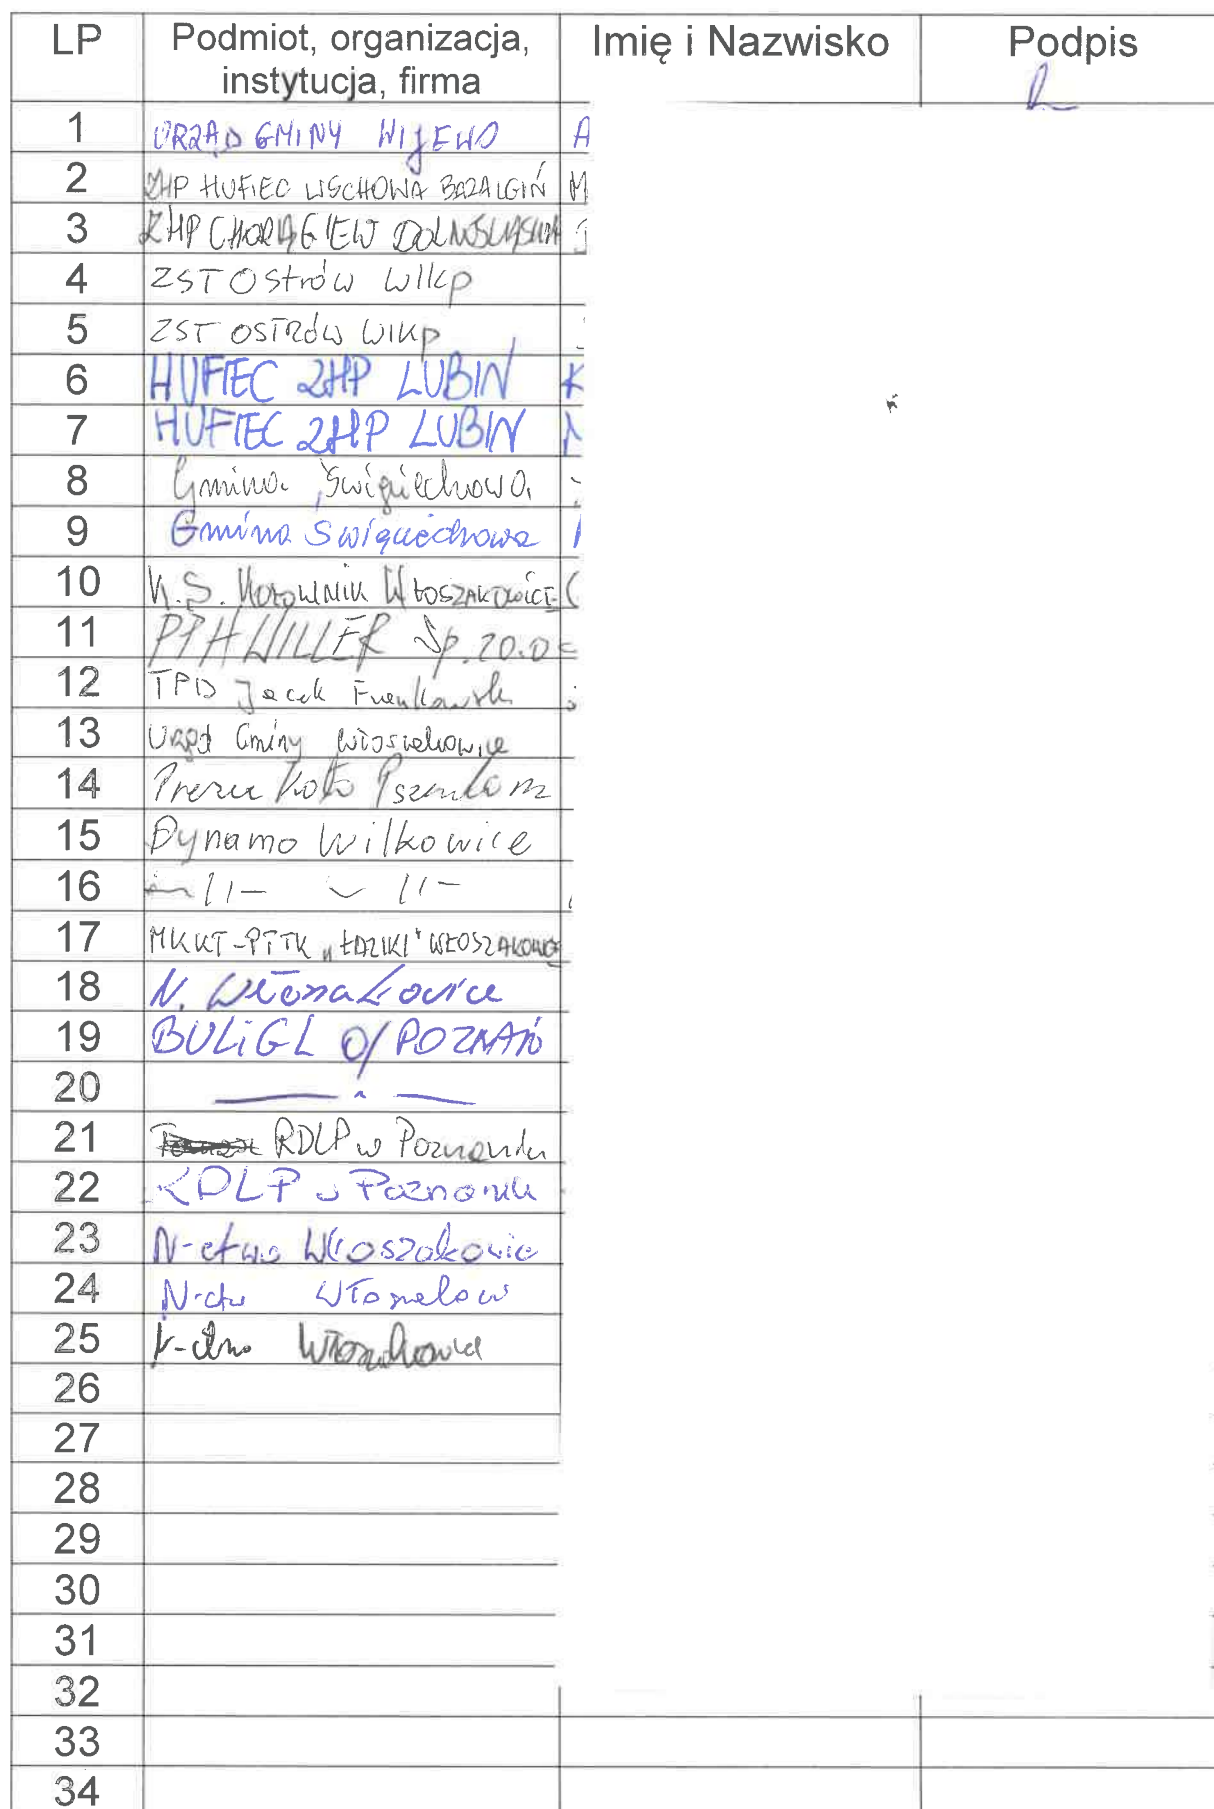 LP Podmiot, organizacja, instytucja, firma Imię i Nazwisko Podpis
1 URZĄD GMINY WIJEWO A
2 ZHP HUFIEC WSCHOWA BAZA LGIŃ M
3 ZHP CHORĄGIEW DOLNOŚLĄSKA
4 ZST Ostrów Wlkp
5 ZST OSTRÓW WLKP
6 HUFIEC ZHP LUBIN K
7 HUFIEC ZHP LUBIN
8 Gmina Święciechowa
9 Gmina Święciechowa
10 K.S. WŁOSZAKOWICE
11 PPH WILLER Sp. z o.o
12 TPD Jacek
13 Urząd Gminy Włoszakowice
14 Prezes Koło
15 Dynamo Wilkowice
16 -11- -11-
17 MKKT-PTTK "ŁAZIKI" WŁOSZAKOWICE
18 N. Włoszakowice
19 BULiGL O/POZNAŃ
20 — " —
21 RDLP w Poznaniu
22 RDLP w Poznaniu
23 N-ctwo Włoszakowice
24 N-ctw
25 N-ctwo Włoszakowice
26
27
28
29
30
31
32
33
34